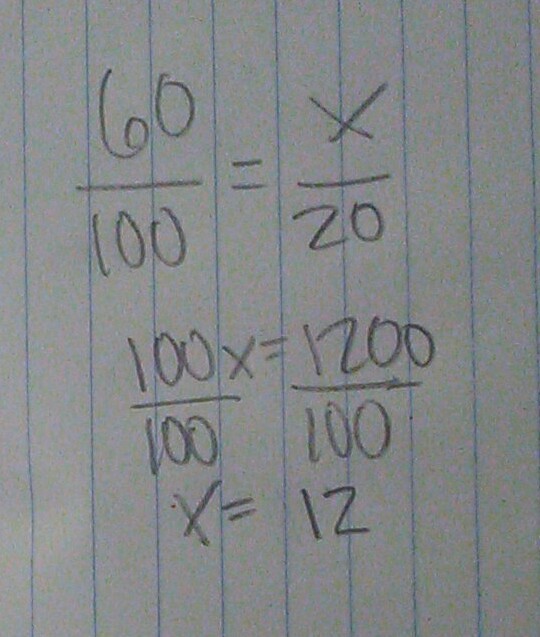 60/100 = x/20
100x/100 = 1200/100
x = 12